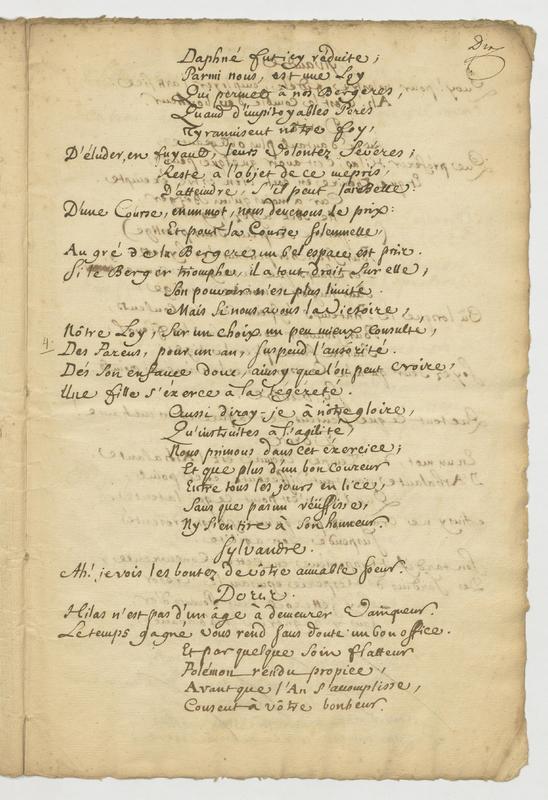 Daphné fut icy réduite;
Parmi nous, est une Loy
Qui permet à nos Bergeres,
Quand d'impitoyables Peres
Tyrannisent nôtre foy,
D'éluder, en fuyant, leurs volontez sévéres;
Reste à l'objet de ce mépris,
D'atteindre, s'il peut, sa Belle.
D'une Course, en un mot, nous devenons le prix:
Et pour la Course solemnelle,
Au gré de la Bergere un bel espace est pris.
Si le Berger triomphe, il a tout droit sur elle;
Son pouvoir n'est plus limité.
Mais si nous avons la victoire,
Nôtre Loy, sur un choix un peu mieux consulté,
4.
Des Parens, pour un an, suspend l'autorité.
Dés son enfance donc, ainsy que l'on peut croire,
Une fille s'éxerce à la légéreté.
Aussi diray-je à nôtre gloire,
Qu'instruites à l'agilité,
Nous primons dans cet éxercice;
Et que plus d'un bon coureur
Entre tous les jours en lice,
Sans que pas un réüssisse,
Ny s'en tire à son honneur.
Sylvandre.
Ah! je vois les bontez de vôtre aimable soeur.
Doris.
Hilas n'est pas d'un âge à demeurer vainqueur.
Le temps gagné vous rend sans doute un bon office.
Et par quelque soin flatteur
Polémon rendu propice,
Avant que l'An s'acomplisse,
Consent à vôtre bonheur.